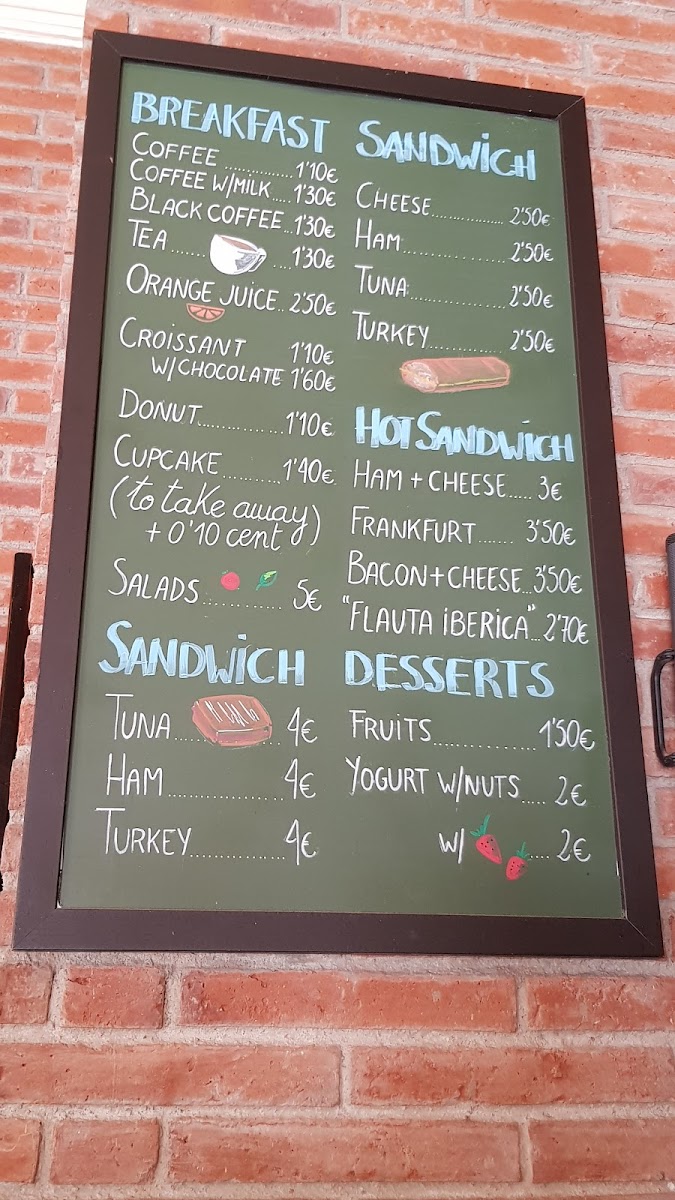 BREAKFAST
COFFEE ............... 1'10€
COFFEE W/MILK ..... 1'30€
BLACK COFFEE ... 1'30€
TEA ....... ..... 1'30€
ORANGE JUICE .. 2'50€
CROISSANT 1'10€
W/CHOCOLATE 1'60€
DONUT ............ 1'10€
CUPCAKE .......... 1'40€
(to take away)
+ 0'10 cent
SALADS ............ 5€
SANDWICH
TUNA ............... 4€
HAM ............... 4€
TURKEY ............. 4€
SANDWICH
CHEESE ................ 2'50€
HAM ................ 2'50€
TUNA ............... 2'50€
TURKEY ............. 2'50€
HOT SANDWICH
HAM + CHEESE ..... 3€
FRANKFURT ....... 3'50€
BACON+CHEESE ... 3'50€
"FLAUTA IBERICA" ... 2'70€
DESSERTS
FRUITS ............... 1'50€
YOGURT W/NUTS ..... 2€
W/ .... 2€